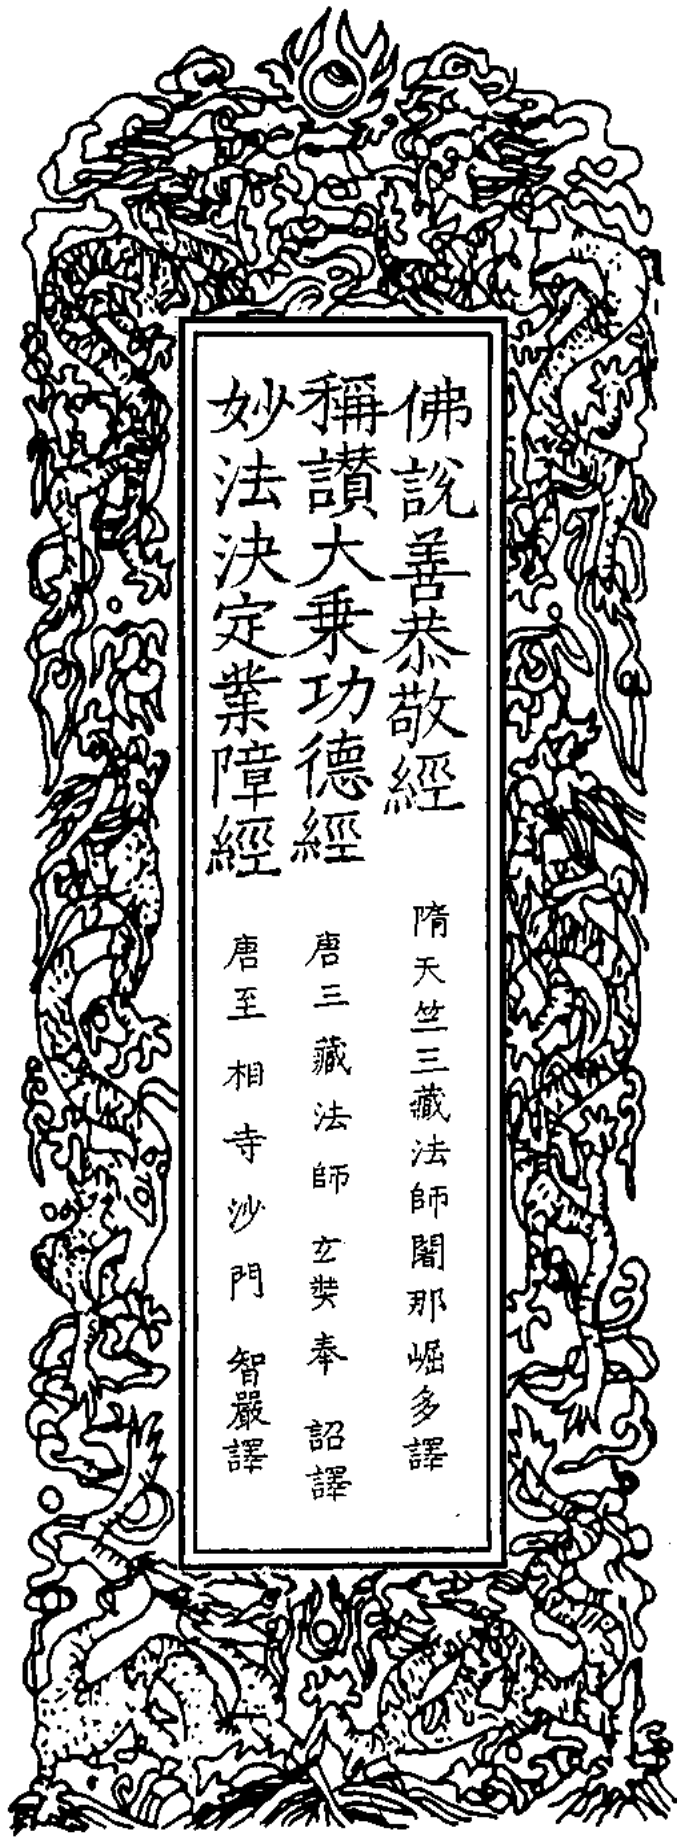 佛說善恭敬經　隋天竺三藏法師闍那崛多譯
稱讚大乘功德經　唐三藏法師玄奘奉　詔譯
妙法決定業障經　唐至相寺沙門　智嚴譯